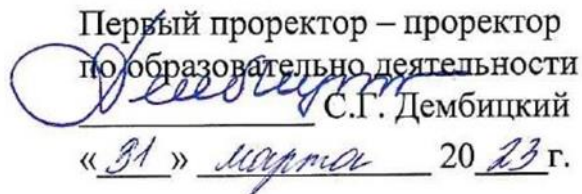 Первый проректор – проректор
по образовательно деятельности
С.Г. Дембицкий
«31» марта 2023 г.